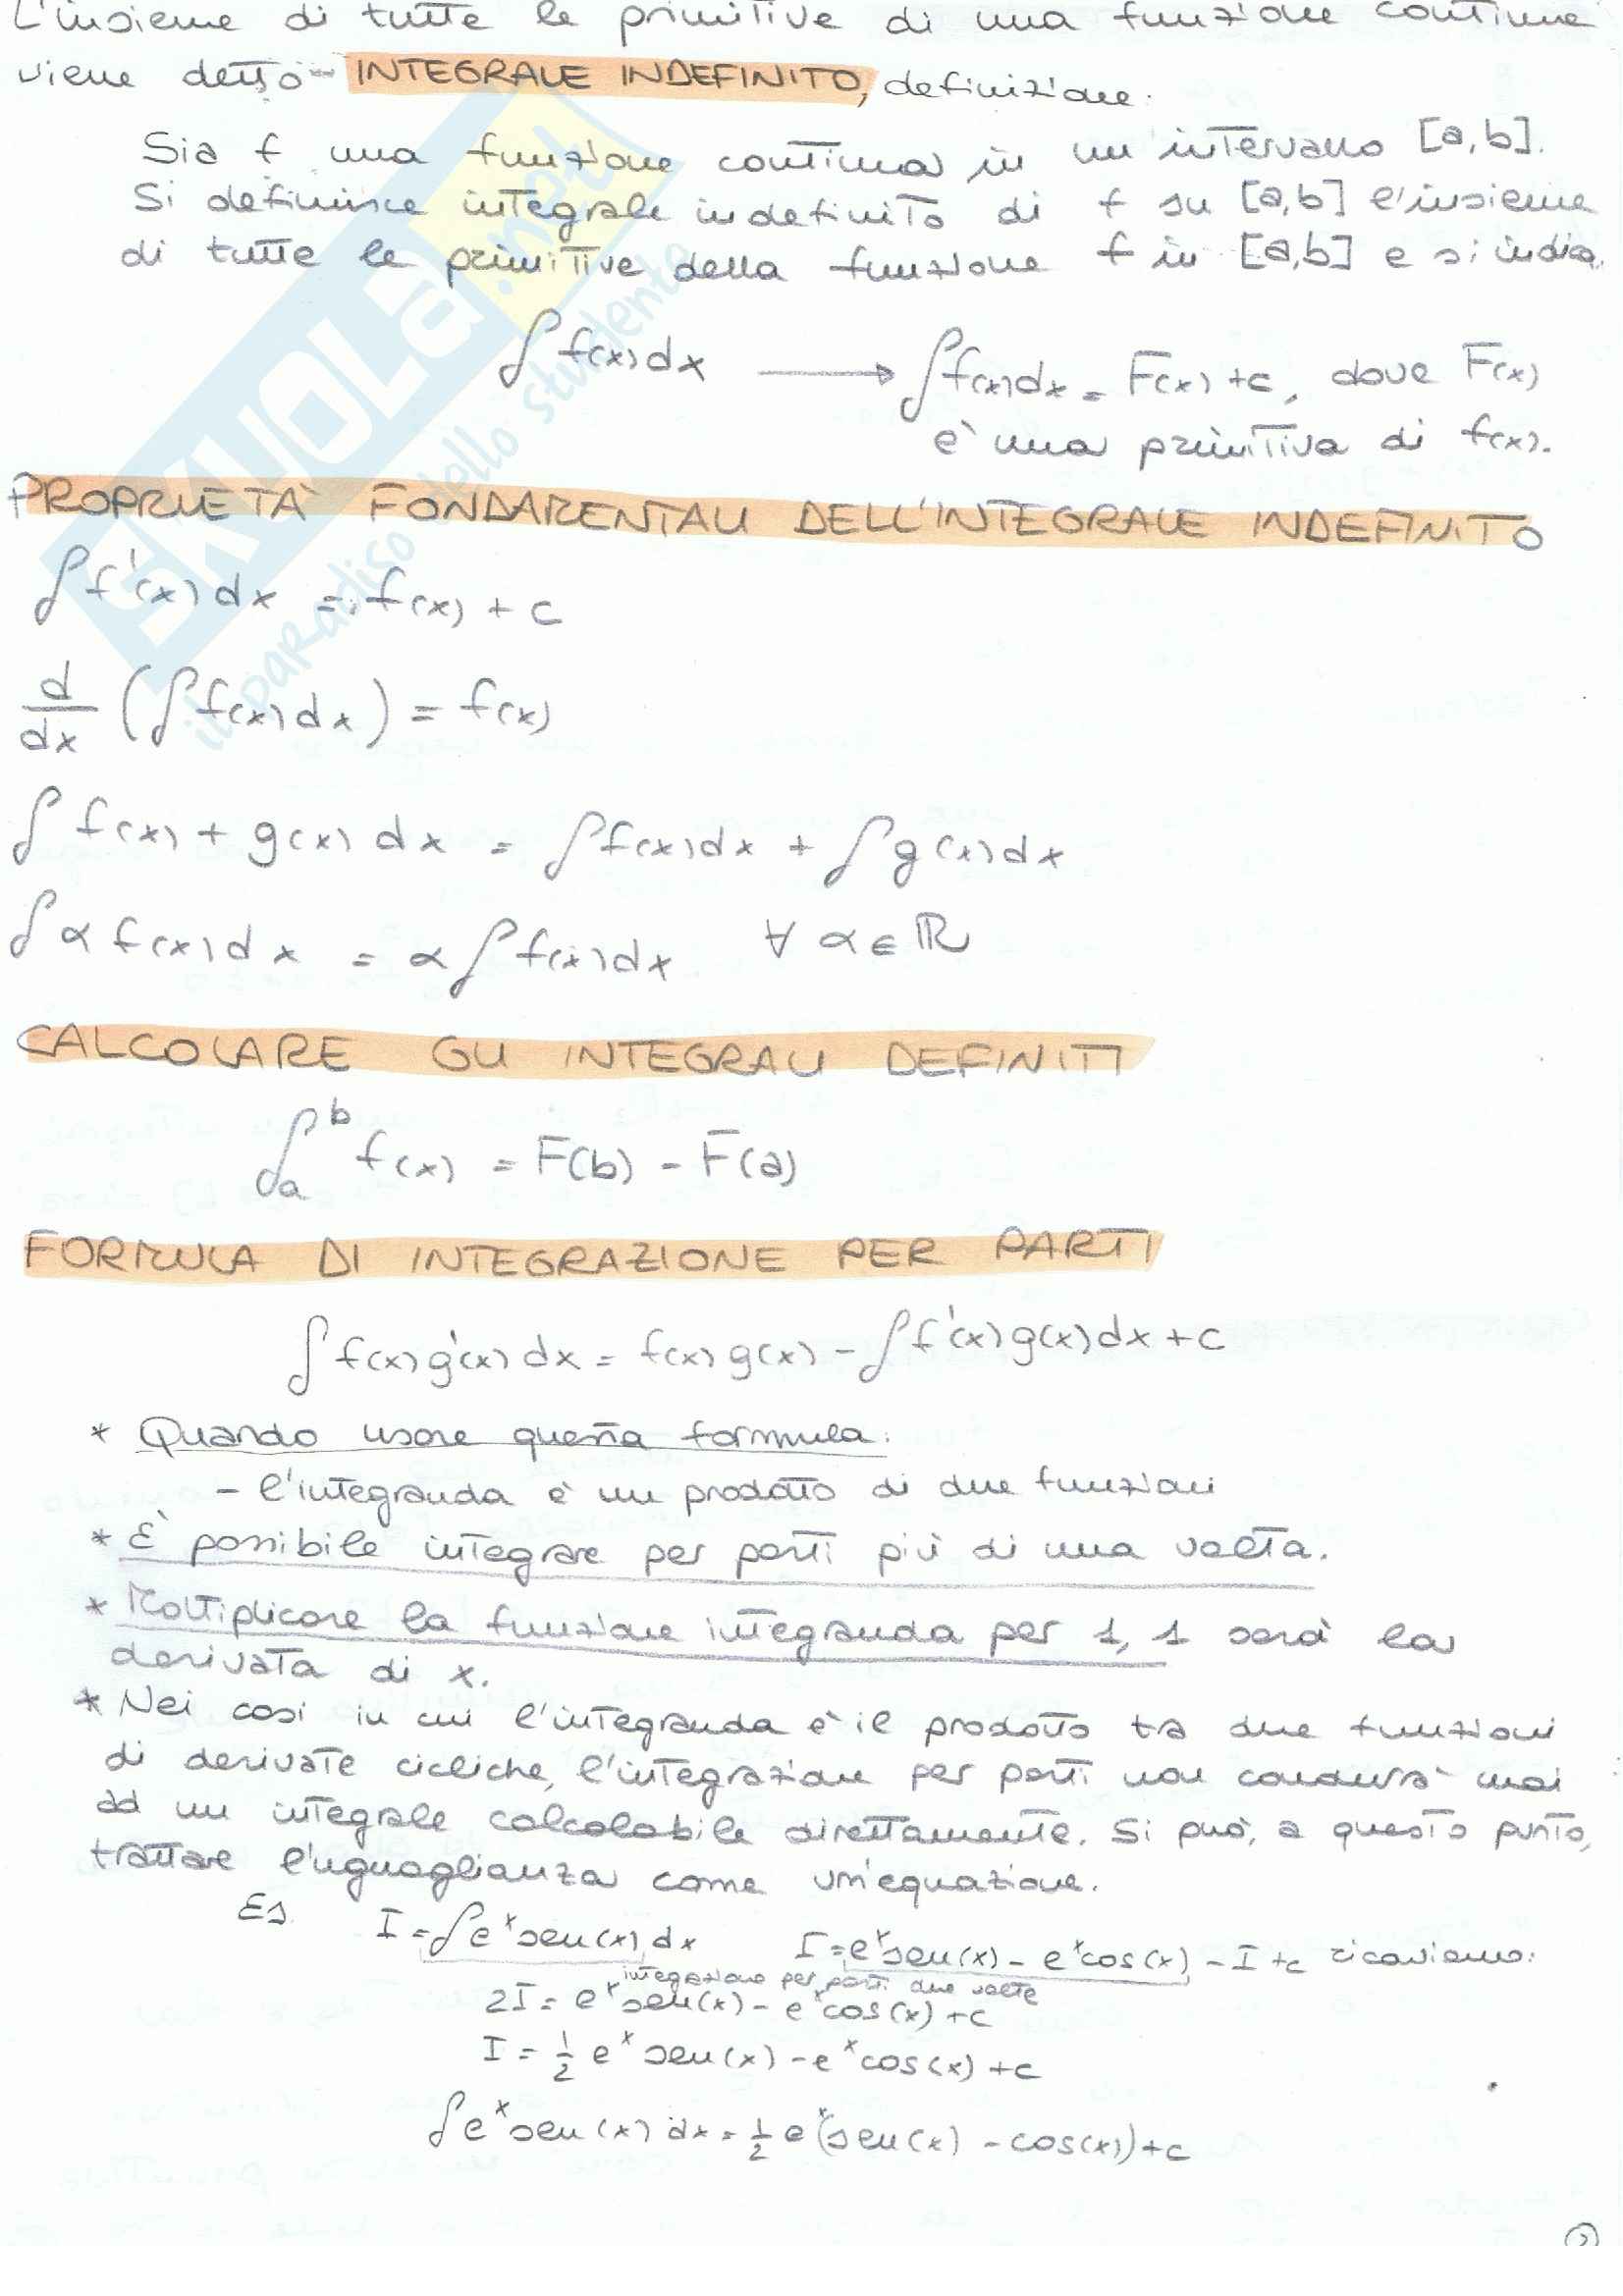 L'insieme di tutte le primitive di una funzione continua
viene detto INTEGRALE INDEFINITO, definizione:
Sia f una funzione continua in un intervallo [a,b].
Si definisce integrale indefinito di f su [a,b] l'insieme
di tutte le primitive della funzione f in [a,b] e si indica
∫f(x)dx → ∫f(x)dx = F(x)+c, dove F(x)
è una primitiva di f(x).
PROPRIETÀ FONDAMENTALI DELL'INTEGRALE INDEFINITO
∫f'(x)dx = f(x) + c
d/dx (∫f(x)dx) = f(x)
∫f(x) + g(x) dx = ∫f(x)dx + ∫g(x)dx
∫αf(x)dx = α∫f(x)dx ∀ α∈ℝ
CALCOLARE GLI INTEGRALI DEFINITI
∫ₐᵇ f(x) = F(b) - F(a)
FORMULA DI INTEGRAZIONE PER PARTI
∫f(x)g'(x)dx = f(x)g(x) - ∫f'(x)g(x)dx + c
* Quando usare questa formula:
- l'integranda è un prodotto di due funzioni
* È possibile integrare per parti più di una volta.
* Moltiplicare la funzione integranda per 1, 1 sarà la
derivata di x.
* Nei casi in cui l'integranda è il prodotto tra due funzioni
di derivate cicliche, l'integrazione per parti non condurrà mai
ad un integrale calcolabile direttamente. Si può, a questo punto,
trattare l'uguaglianza come un'equazione.
Es. I = ∫eˣsen(x)dx I = eˣsen(x) - eˣcos(x) - I + c ricaviamo:
integrazione per parti due volte
2I = eˣsen(x) - eˣcos(x) + c
I = 1/2 eˣsen(x) - eˣcos(x) + c
∫eˣsen(x)dx = 1/2 eˣ(sen(x) - cos(x)) + c
2
SKUOLA.net
il paradiso dello studente